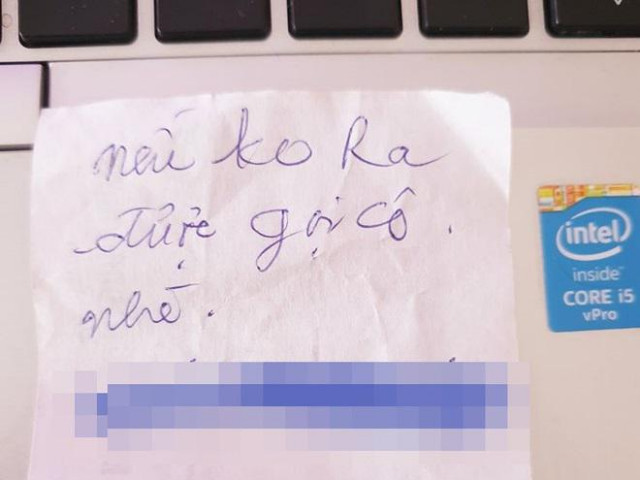 nếu ko Ra
được gọi cô.
nhé.
intel
inside
CORE i5
vPro